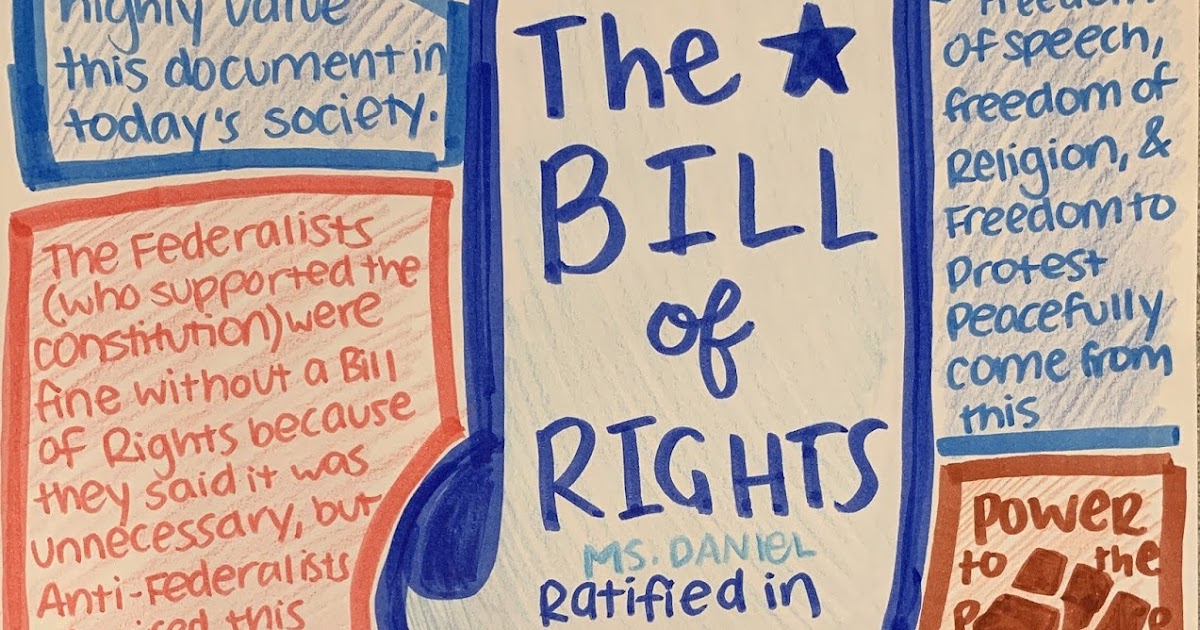 highly value
this document in
today's society.
The Federalists
(who supported the
constitution) were
fine without a Bill
of Rights because
they said it was
unnecessary, but
Anti-Federalists
this
The
BILL
of
RIGHTS
MS. DANIEL
Ratified in
Freedom
of speech,
freedom of
Religion, &
Freedom to
protest
peacefully
come from
this
POWER
to the